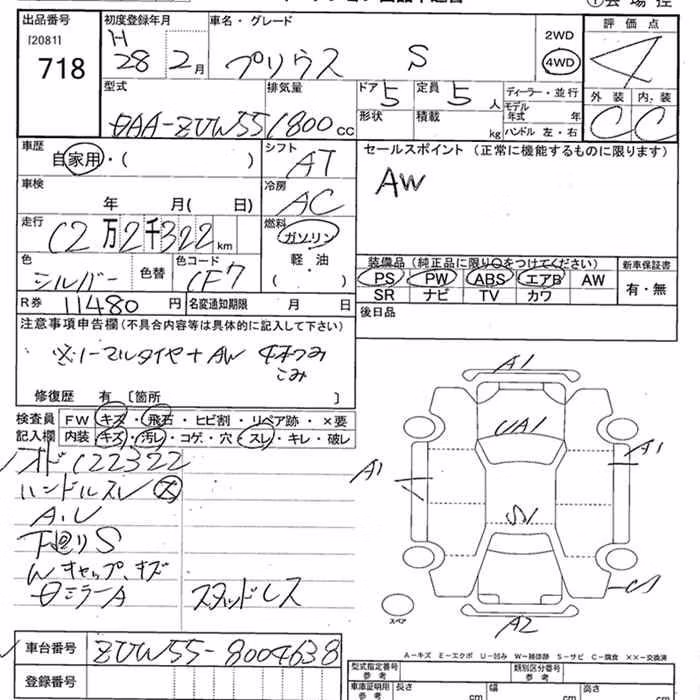 出品番号 初度登録年月 車名・グレード 2WD 評価点
[20811] H
718 28 2月 プリウス S 4WD 4
型式 排気量 ドア 定員 ディーラー・並行 外装 内装
DAA-ZVW55 1800cc 5 5人 モデル年式 年 C C
形状 積載 kg ハンドル 左・右
車歴 シフト セールスポイント (正常に機能するものに限ります)
自家用・( ) AT AW
車検 冷房
年 月( 日) AC
走行 燃料
12万2千322km ガソリン
軽・油
色 色替 色コード ・ 装備品 (純正品に限り○をつけてください) 新車保証書
シルバー 1F7 ( ) PS PW ABS エアB AW 有・無
R券 11480円 名変通知期限 月 日 SR ナビ TV カワ
注意事項申告欄(不具合内容等は具体的に記入して下さい) 後日品
※ノーマルタイヤ+AW 4本つみ
こみ
修復歴 有 [箇所 ]
検査員 FW キズ・飛石・ヒビ割・リペア跡・×要
記入欄 内装 キズ・汚レ・コゲ・穴・スレ・キレ・破レ
オド122322
ハンドルスレ
A.U
下廻りS
Wキャップ、キズ
ミラーA スタッドレス
A1
UA1
A1 A1
S1
A2
スペア
A－キズ E－エクボ U－凹み W－補修跡 S－サビ C－腐食 ××－交換済
車台番号 ZVW55-8004638
登録番号
型式指定番号 参考 類別区分番号 参考
車庫証明用 参考 長さ cm 幅 cm 高さ cm